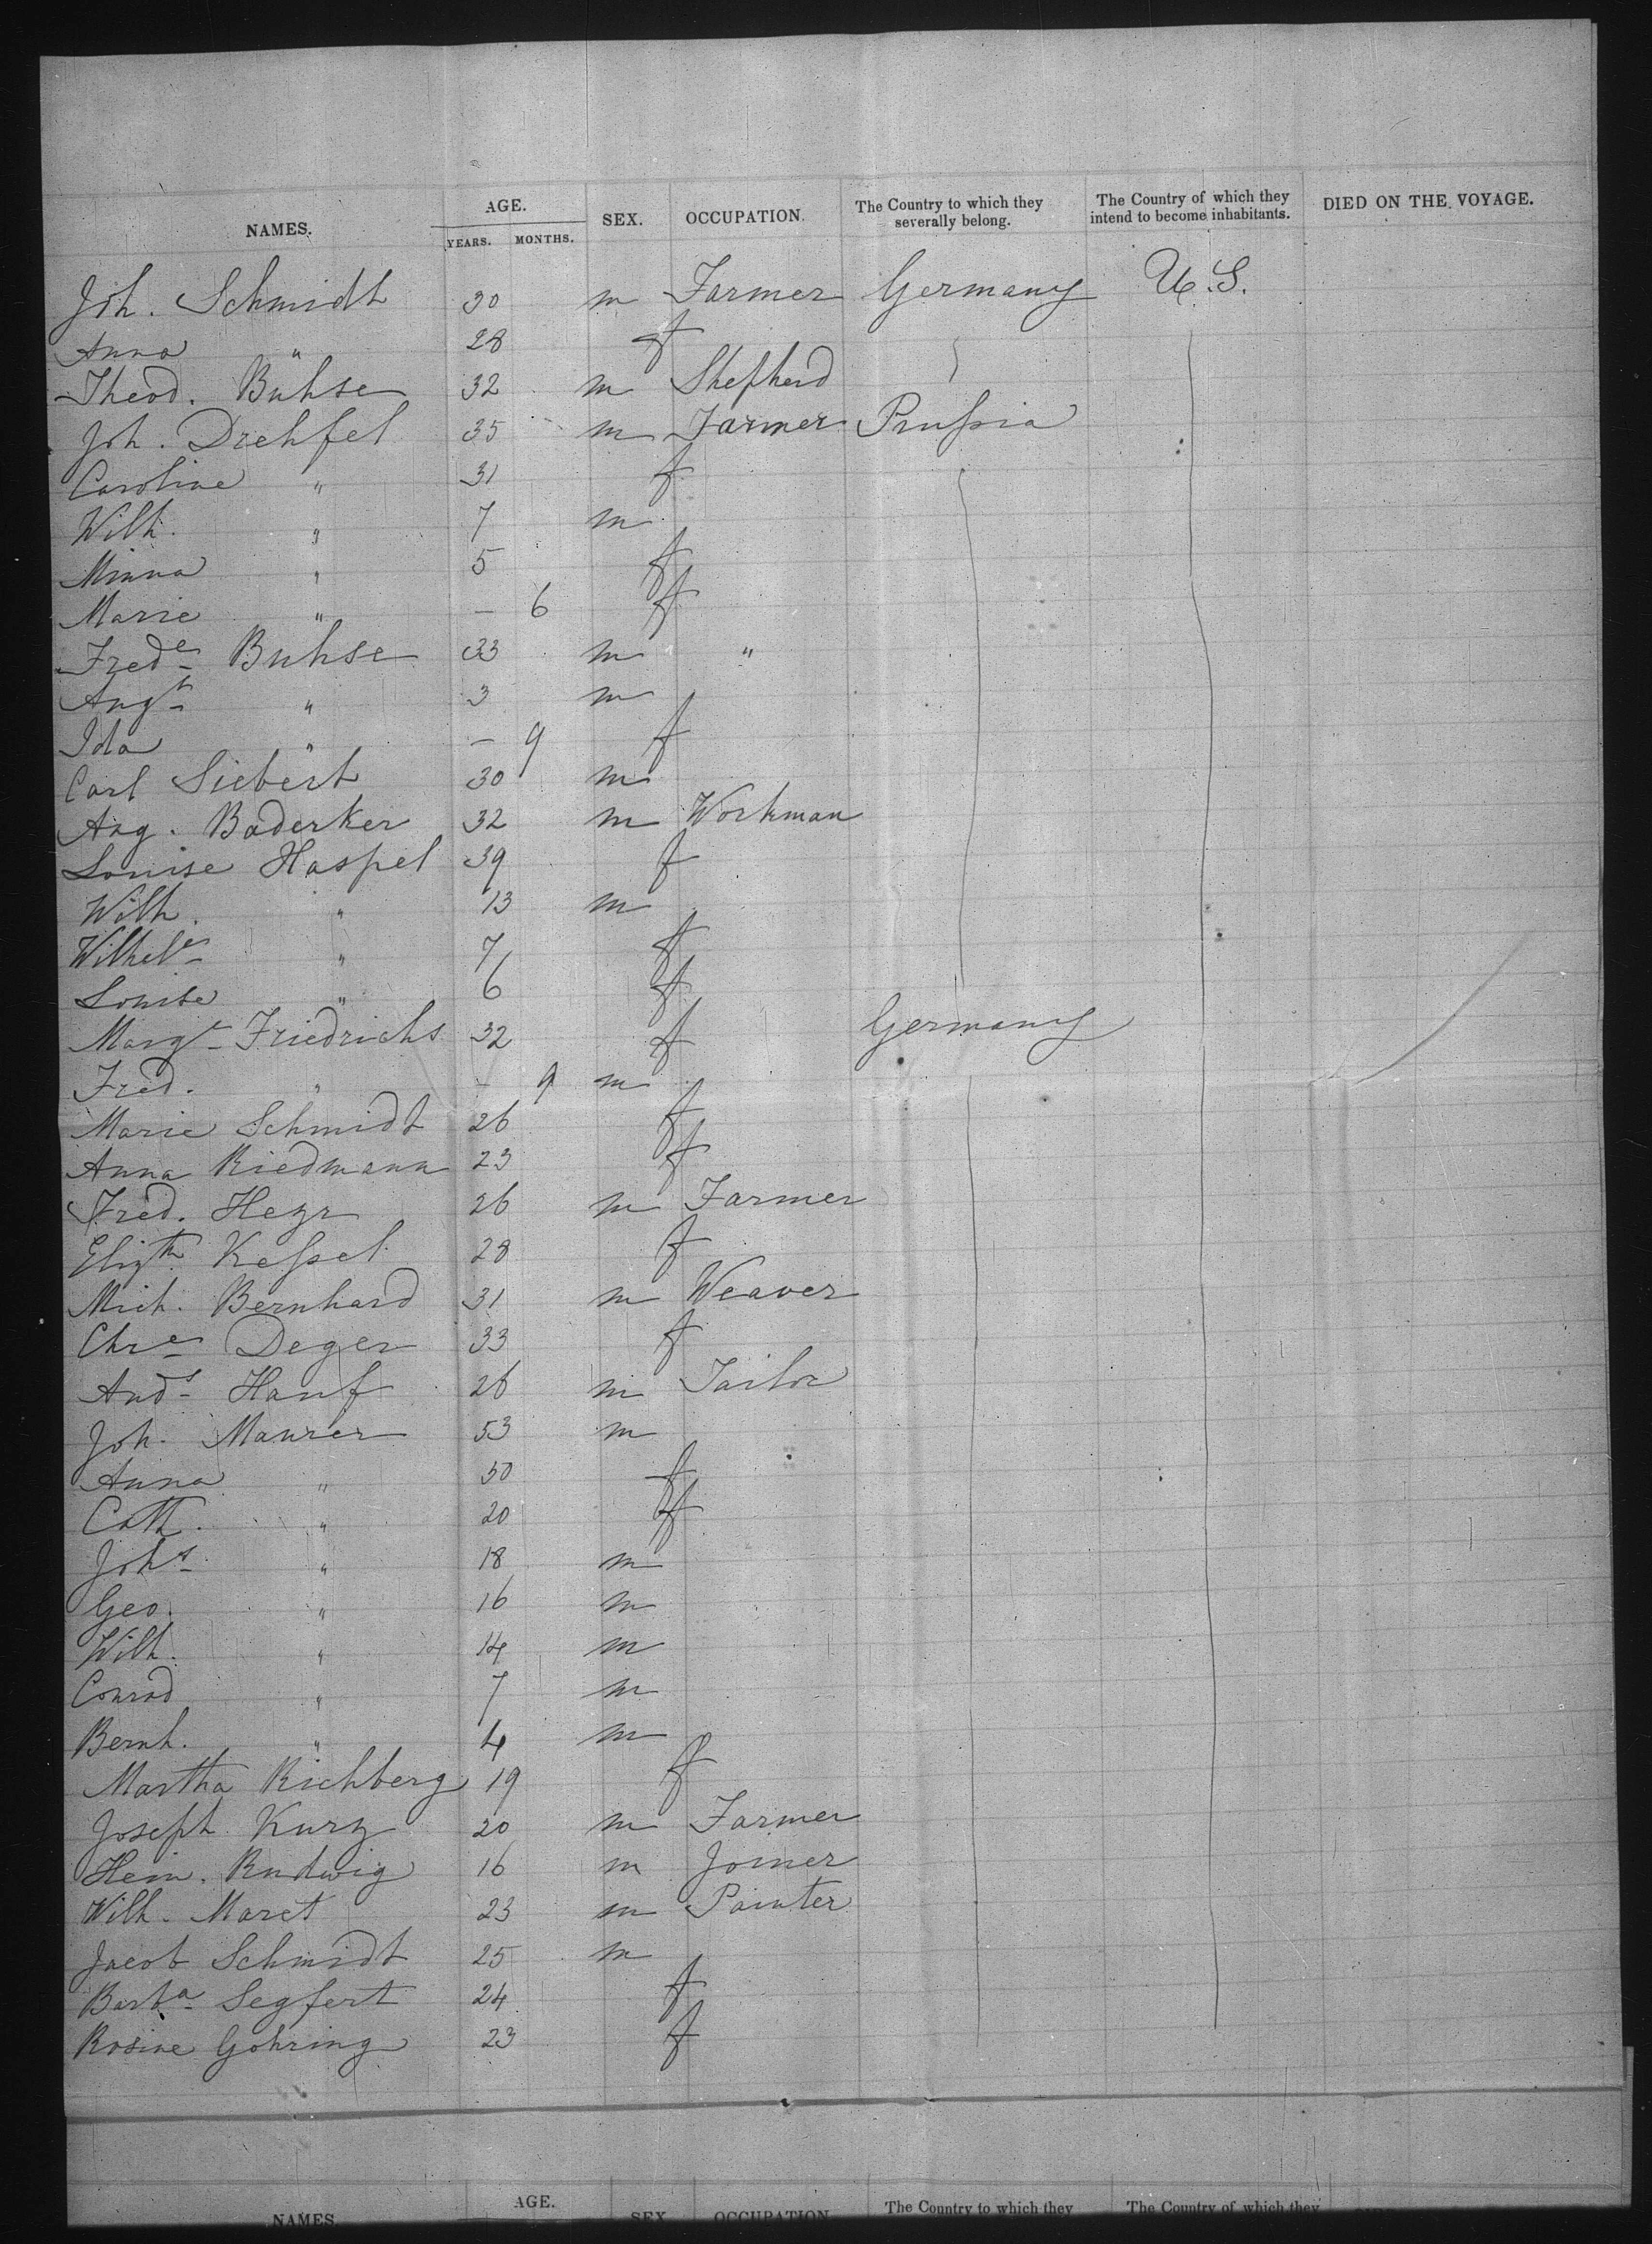 NAMES. AGE. SEX. OCCUPATION. The Country to which they severally belong. The Country of which they intend to become inhabitants. DIED ON THE VOYAGE.
YEARS. MONTHS.
Joh. Schmidt 30 m Farmer Germany U.S.
Anna " 28 f
Theod. Buhse 32 m Shepherd
Joh. Drehfel 35 m Farmer Prussia
Caroline " 31 f
Wilh. " 7 m
Minna " 5 f
Marie " – 6 f
Frede Buhse 33 m "
Augt " 3 m
Ida " – 9 f
Carl Siebert 30 m
Aug. Baderker 32 m Workman
Louise Haspel 39 f
Wilh. " 13 m
Wilhele " 7 f
Louise " 6 f
Margt Friedrichs 32 f Germany
Fred. " – 9 m
Marie Schmidt 26 f
Anna Riedmann 23 f
Fred. Heyr 26 m Farmer
Elizth Kessel 28 f
Mich. Bernhard 31 m Weaver
Chre Deger 33 f
Ands Hanf 26 m Tailor
Joh. Maurer 53 m
Anna " 50 f
Cath. " 20 f
Johs " 18 m
Geo. " 16 m
Wilh. " 14 m
Conrad " 7 m
Bernh. " 4 m
Martha Richberg 19 f
Joseph Kurz 20 m Farmer
Hein. Rudwig 16 m Joiner
Wilh. Maret 23 m Painter
Jacob Schmidt 25 m
Barba Segfert 24 f
Rosine Gohring 23 f
NAMES AGE. SEX OCCUPATION The Country to which they The Country of which they